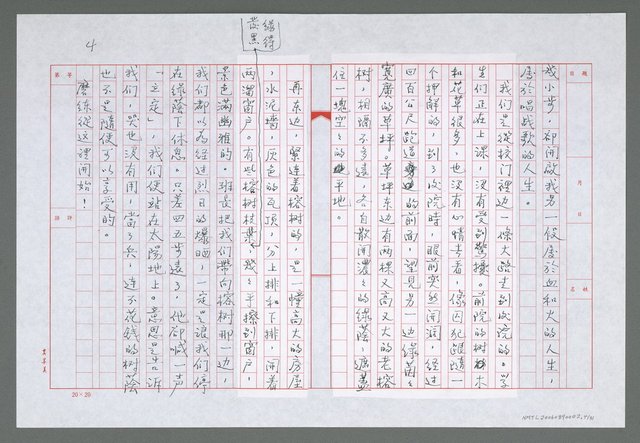 4
綠得
發黑
幾小步，卻開啟我另一段屬於血和火的人生，
屬於唱戰歌的人生。
我們是從校門裡邊一條大路走到後院的。學
生們正在上課，沒有受到驚擾。前院的樹木
和花草很多，也沒有心情去看，像囚犯跟隨一
個押解的，到了後院時，眼前突然開闊，經過
四百公尺跑道的前面，望見另一邊綠茵々
寬廣的草坪。草坪東邊有兩棵又高又大的老榕
樹，相隔不多遠，各自散開濃々的綠蔭，遮蓋
住一塊空々的平地。
再東邊，緊連着榕樹的，是一幢高大的房屋
，水泥牆，灰色的瓦頂，分上排和下排，開着
兩溜窗戶。有些榕樹枝葉，幾乎擦到窗戶，
景色滿幽雅的。班長把我們帶向榕樹那一邊，
我們都以為經過烈日的爆晒，一定是讓我們停
在綠蔭下休息。只差四五步遠了，他卻喊一聲
「立定」，我們便站在太陽地上。意思是告訴
我們，哭也沒有用，當了兵，連不花錢的樹蔭
也不是隨便可以享受的。
磨練從這裡開始！
20×20
NMTL20060890002